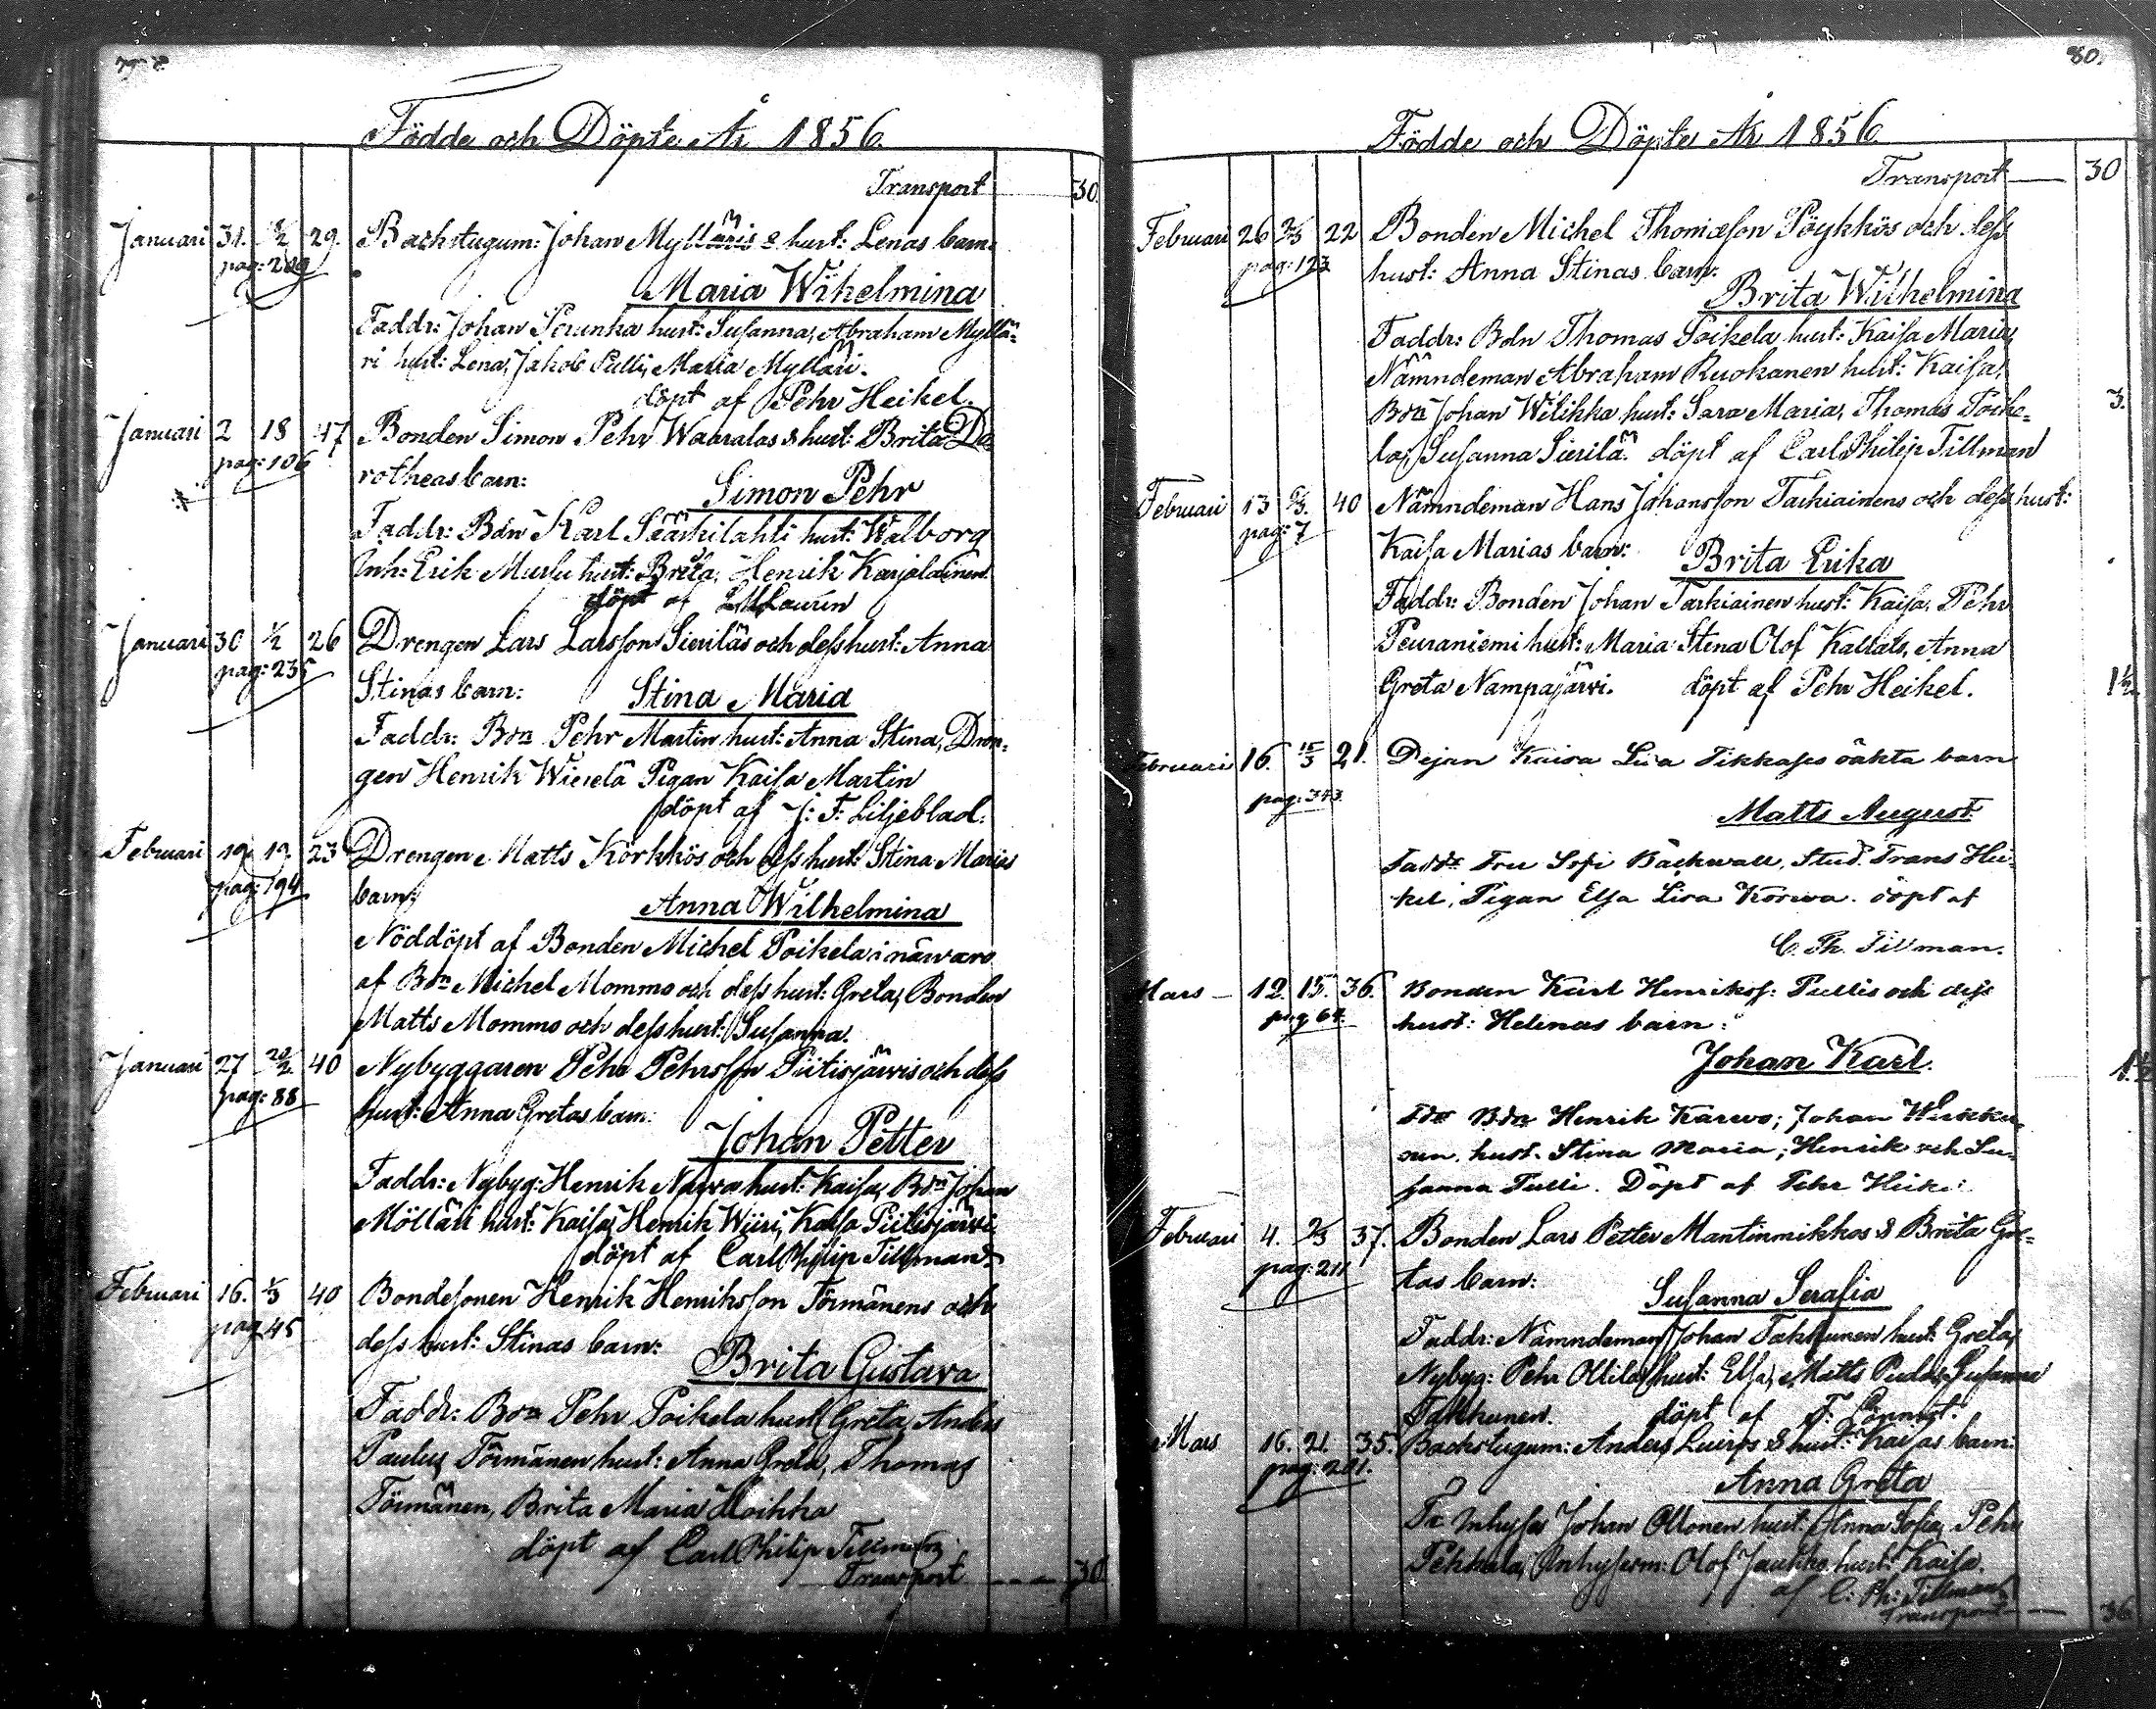 79
Födde och Döpte År 1856.
Transport 30.
Januari 31. 29. Backstugum: Johan Mylläris & hust: Lenas barn:
pag:
Maria Wilhelmina
Faddr: Johan Perunka hust: Susanna, Abraham Myllä-
ri hust: Lena, Jakob Pulli, Maria Mylläri.
döpt af Pehr Heikel.
Januari 2 18 47 Bonden Simon Pehr Waaralas & hust: Brita Do
pag: 106
rotheas barn:
Simon Pehr
Faddr: Bdn Karl Sääskilahti hust: Walborg
Inh: Erik Mursu hust: Brita, Henrik Karjalainen
döpt af
Januari 30 1/2 26 Drengen Lars Larsson Sieriläs och dess hust: Anna
pag: 235
Stinas barn:
Stina Maria
Faddr: Bdn Pehr Martin hust: Anna Stina, Dren-
gen Henrik Wierelä Pigan Kaisa Martin
döpt af J: F: Liljeblad.
Februari 19. 19. 23 Drengen Matts Körkkös och dess hust: Stina Marias
pag: 194
barn:
Anna Wilhelmina
Nöddöpt af Bonden Michel Poikela i närvaro
af Bdn Michel Mommo och dess hust: Greta, Bonden
Matts Mommo och dess hust: Susanna.
Januari 27 40 Nybyggaren Pehr Pehrsson Piitisjärwis och dess
pag: 88
hust: Anna Gretas barn:
Johan Petter
Faddr: Nybyg: Henrik Narwa hust: Kaisa, Bdn Johan
Mölläri hust: Kaisa, Henrik Wiiri, Kaisa Piitisjärwi
döpt af Carl Philip Tillman
Februari 16. 1/3 40 Bondesonen Henrik Henriksson Törmänens och
pag 45
dess hust: Stinas barn:
Brita Gustava
Faddr: Bdn Pehr Poikela hust: Greta, Anders
Paulus Törmänen hust: Anna Greta, Thomas
Törmänen, Brita Maria Hoikka
döpt af Carl Philip Tillman
Transport 30
80.
Födde och Döpte År 1856
Transport 30
Februari 26 2/3 22 Bonden Michel Thomasson Pöykkös och dess
pag: 123
hust: Anna Stinas barn:
Brita Wilhelmina
Faddr: Bdn Thomas Poikela hust: Kaisa Maria,
Nämndeman Abraham Ruokanen hust: Kaisa,
Bdn Johan Wilikka hust: Sara Maria, Thomas Poike- 3.
la, Susanna Sierilä. döpt af Carl Philip Tillman
Februari 13 40 Nämndeman Hans Johansson Tarkiainens och dess hust:
pag: 7
Kaisa Marias barn:
Brita Erika
Faddr: Bonden Johan Tarkiainen hust: Kaisa, Pehr
Peuraniemi hust: Maria Stena Olof Kallats, Anna
Greta Nampajärwi. döpt af Pehr Heikel. 1½
Februari 16. 15/3 21. Pejan Kaisa Lisa Tikkases oäkta barn
pag: 343
Matts August
Faddr Fru Sofi Bäckwall, Stud. Frans Hei-
kel, Pigan Elsa Lisa Korwa. döpt af
C. Ph. Tillman.
Mars 12. 15. 36. Bonden Karl Henrikss: Pullis och dess
pag 64.
hust: Helenas barn:
Johan Karl.
Bdn Henrik Karwo; Johan
nen, hust. Stina Maria; Henrik och Su-
sanna Pulli. Döpt af Pehr Heikel
Februari 4. 2/3 37. Bonden Lars Petter Mantinmikkos & Brita Gre-
pag: 211
tas barn:
Susanna Serafia
Faddr: Nämndeman Johan Takkunen hust: Greta,
Nybyg: Pehr Ollila hust: Elsa, Matts Susanna
Takkunen. döpt af F. Lönnrot.
Mars 16. 21. 35. Backstugum: Anders Luiros & hust: Kaisas barn:
pag: 201.
Anna Greta
Fr Inhyses Johan Ollonen hust: Anna Sofia, Pehr
Pekkala, Inhysesm: Olof Jaukka hust: Kaisa.
af C: Ph: Tillman
Transport 36